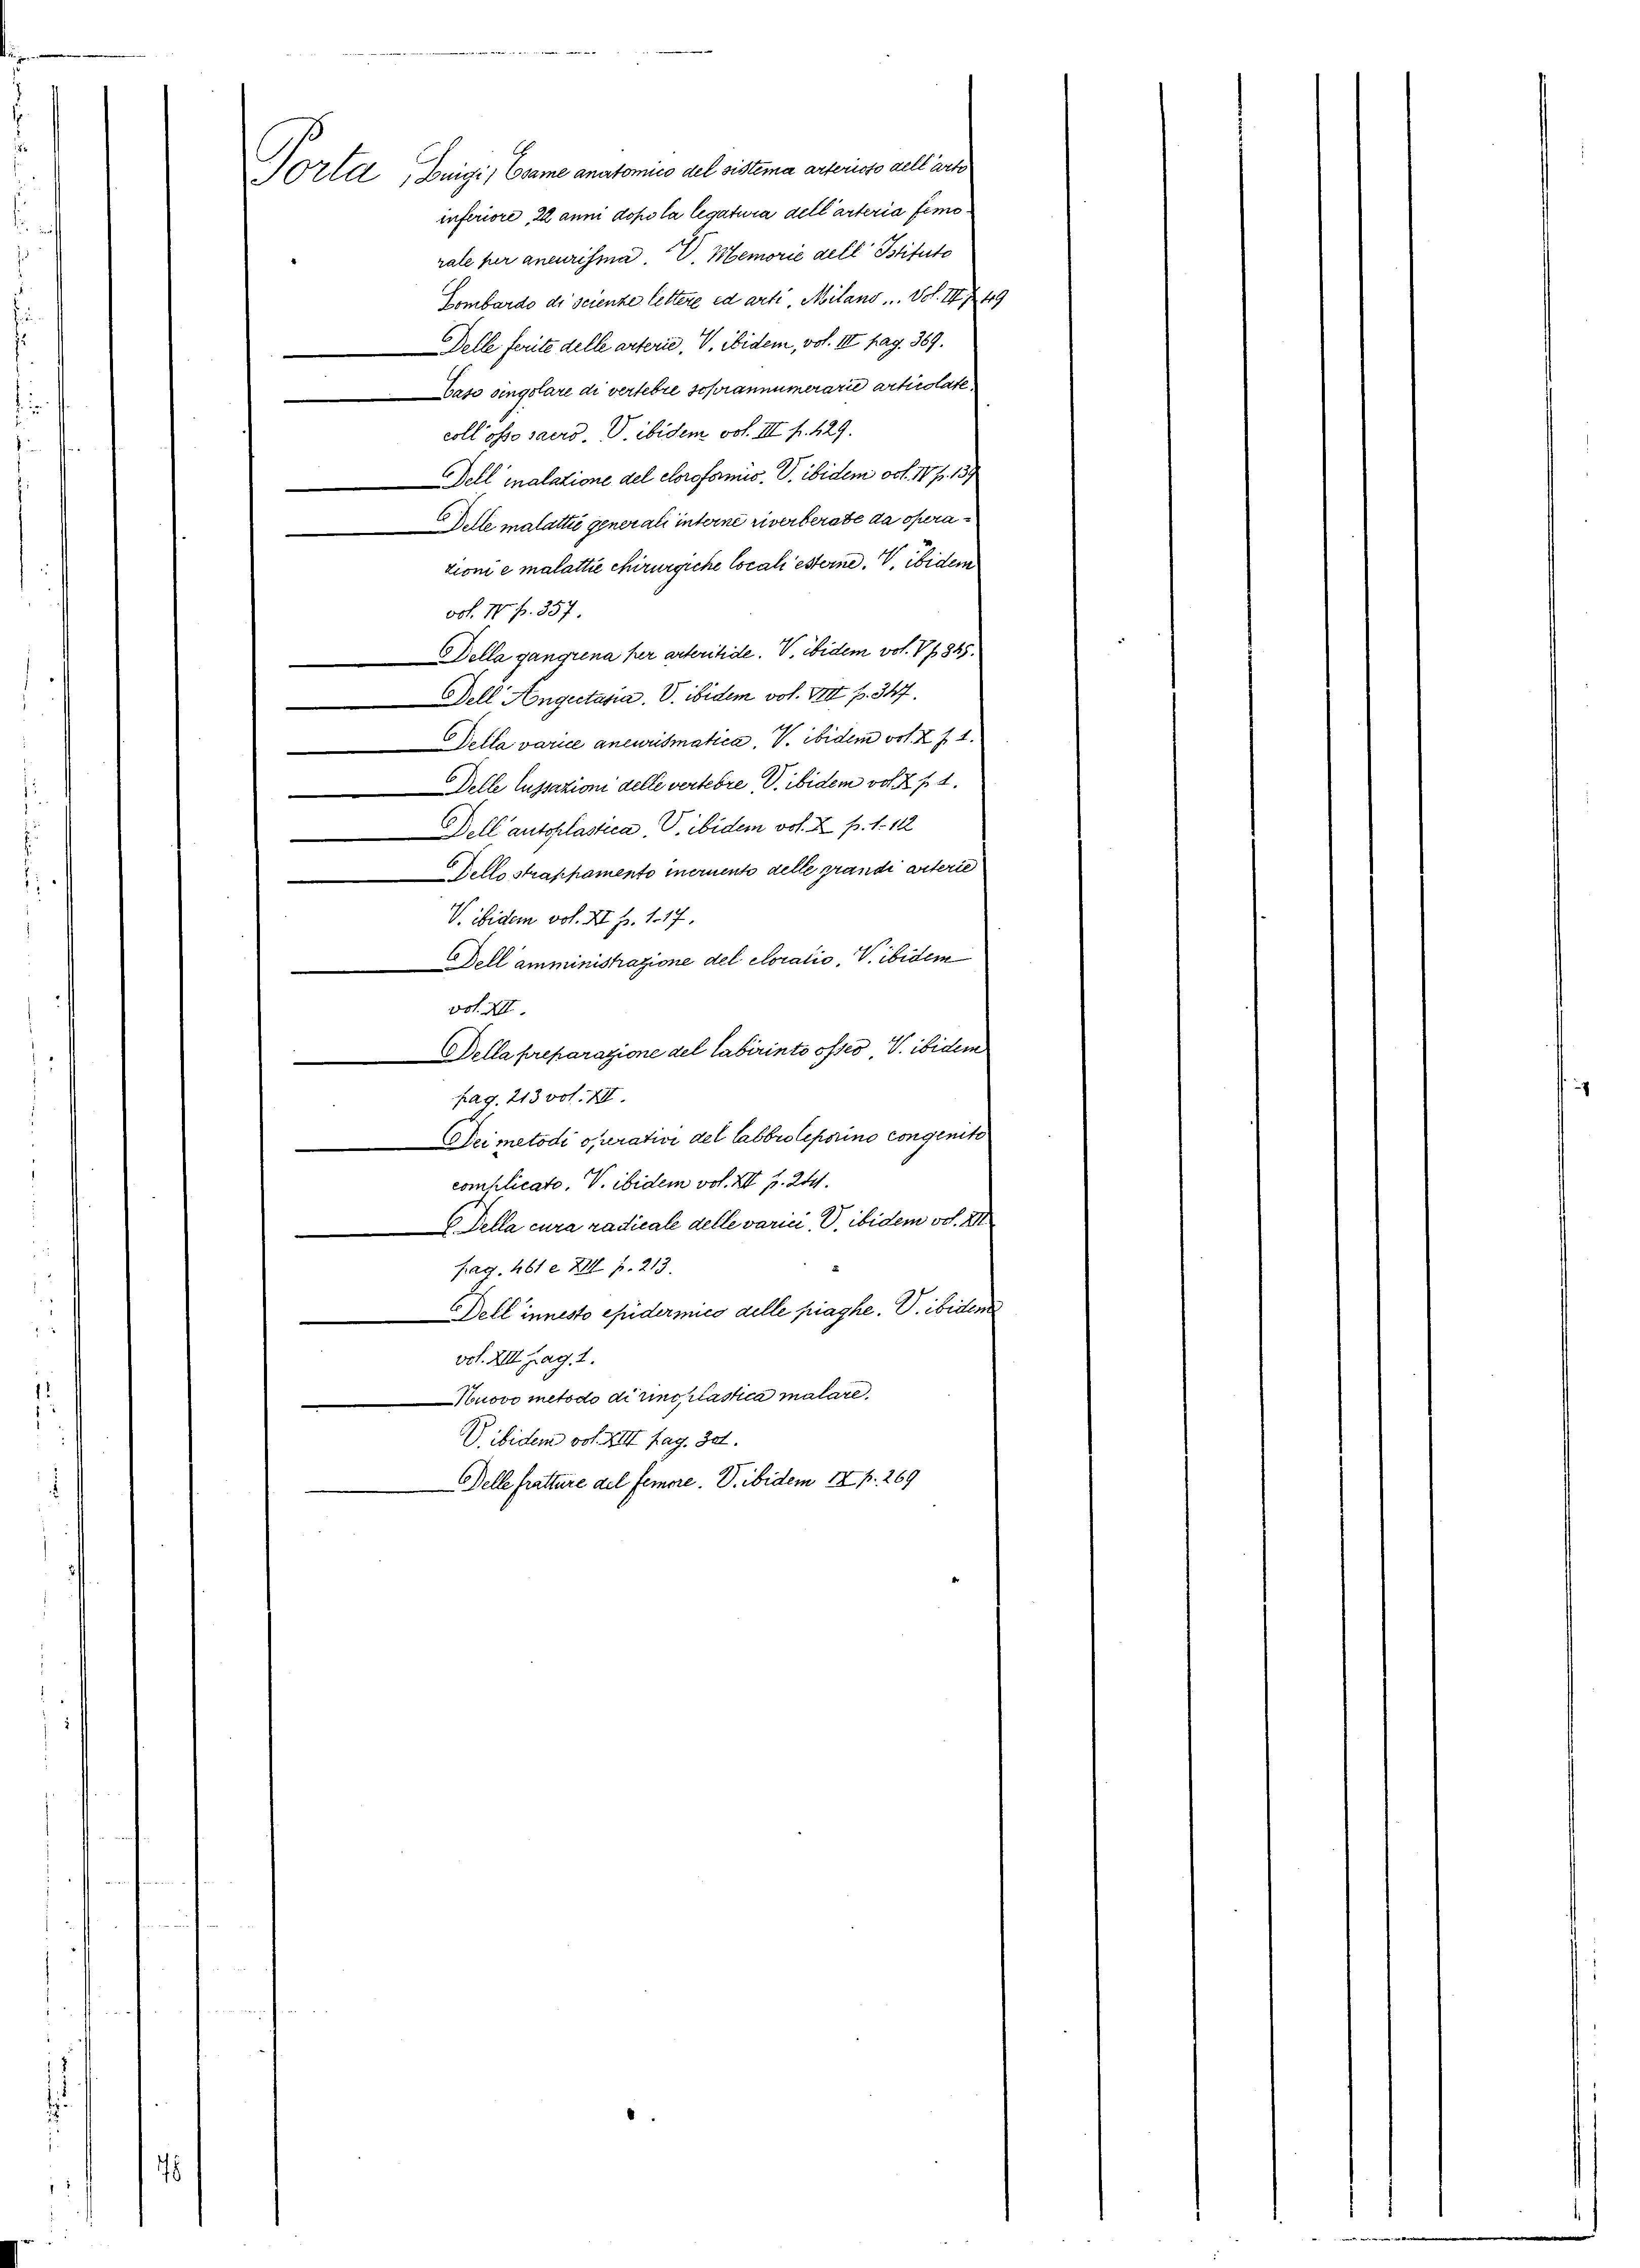 Porta, Luigi, Esame anatomico del sistema arterioso dell'arto
inferiore, 22 anni dopo la legatura dell'arteria femo-
rale per aneurisma. V. Memorie dell'Istituto
Lombardo di scienze lettere ed arti, Milano... Vol. III p. 49
Delle ferite delle arterie, V. ibidem, vol. III pag. 369.
Caso singolare di vertebre soprannumerarie articolate
coll'osso sacro. V. ibidem vol. III p. 429.
Dell'inalazione del cloroformio. V. ibidem vol. IV p. 139
Delle malattie generali interne riverberate da opera-
zioni e malattie chirurgiche locali esterne. V. ibidem
vol. IV p. 357.
Della gangrena per arteritide. V. ibidem vol. V p. 345.
Dell'Angectasia. V. ibidem vol. VIII p. 347.
Della varice aneurismatica. V. ibidem vol. X p. 1.
Delle lussazioni delle vertebre, V. ibidem vol. X p. 1.
Dell'autoplastica, V. ibidem vol. X p. 1-112
Dello strappamento incruento delle grandi arterie
V. ibidem vol. XI p. 1-17.
Dell'amministrazione del cloralio, V. ibidem
vol. XII.
Della preparazione del labirinto osseo, V. ibidem
pag. 213 vol. XII.
Dei metodi operativi del labbro leporino congenito
complicato. V. ibidem vol. XII p. 241.
Della cura radicale delle varici, V. ibidem vol. XII
pag. 461 e XIII p. 213.
Dell'innesto epidermico delle piaghe. V. ibidem
vol. XIII pag. 1.
Nuovo metodo di rinoplastica malare.
V. ibidem vol. XIII pag. 301.
Delle fratture del femore. V. ibidem IX p. 269
78